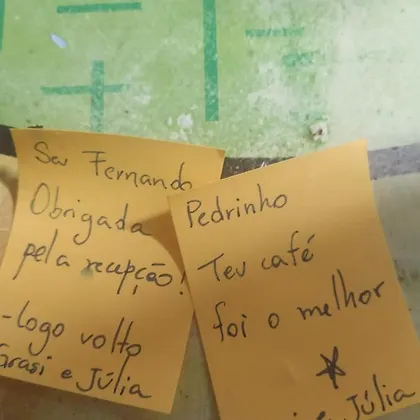 Seu Fernando
Obrigada
pela recepção!
-logo volto
Grasi e Júlia
Pedrinho
Teu café
foi o melhor
e Júlia